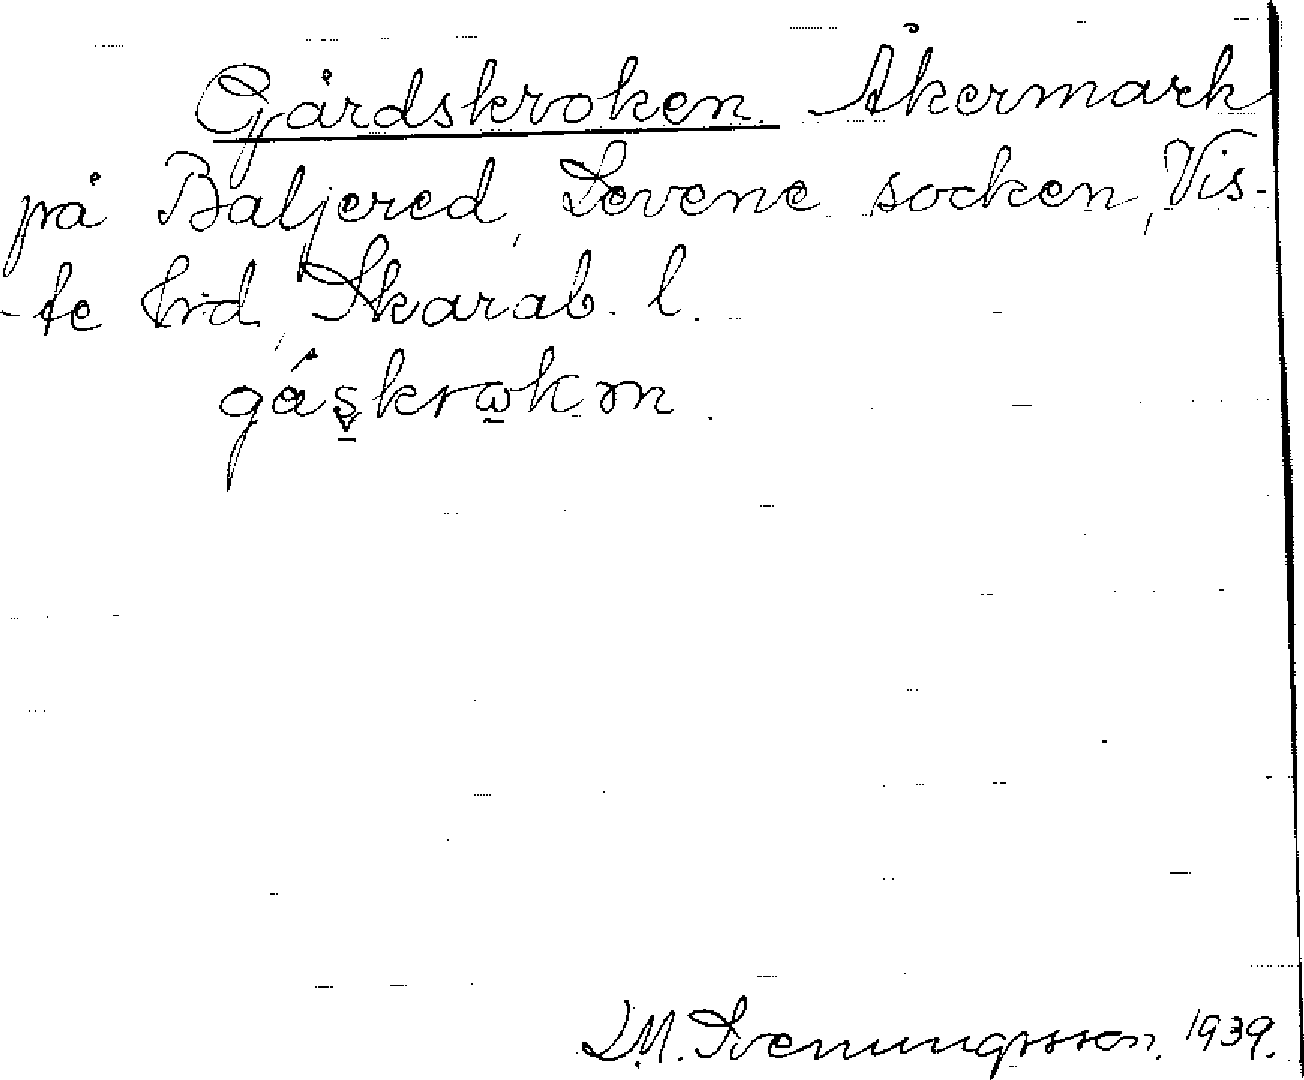 Gårdskroken. Åkermark
på Baljered, Levene socken, Vis-
-te hrd, Skarab. l.
J.M. Svenungsson. 1939.